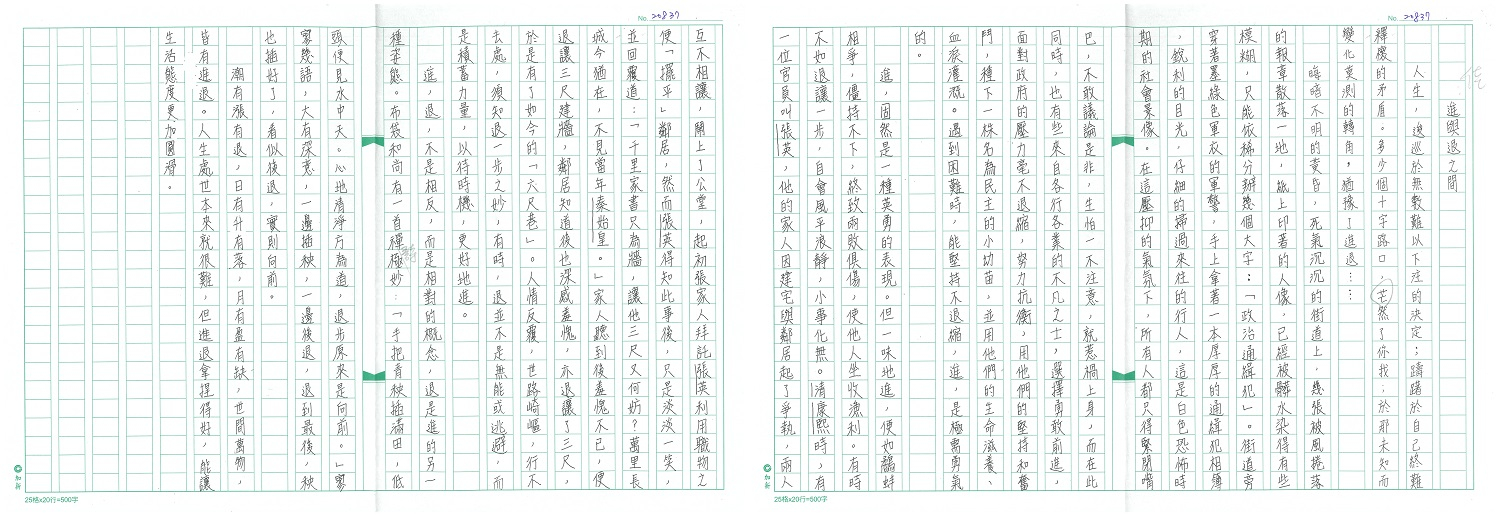 No. 20837
進與退之間
人生，逡巡於無數難以下注的決定；躊躇於自己終難
釋懷的矛盾。多少個十字路口，芒然了你我；於那未知而
變化莫測的轉角，猶豫了進退……
晦暗不明的黃昏，死氣沉沉的街道上，幾張被風捲落
的報章散落一地，紙上印著的人像，已經被髒水染得有些
模糊，只能依稀分辨幾個大字：「政治通緝犯」。街道旁
穿著墨綠色軍衣的軍警，手上拿著一本厚厚的通緝犯相簿
，銳利的目光，仔細的掃過來往的行人，這是白色恐怖時
期的社會景像。在這壓抑的氣氛下，所有人都只得緊閉嘴
巴，不敢議論是非，生怕一不注意，就惹禍上身，而在此
同時，也有些來自各行各業的不凡之士，選擇勇敢前進，
面對政府的壓力毫不退縮，努力抗衡，用他們的堅持和奮
鬥，種下一株名為民主的小幼苗，並用他們的生命滋養、
血淚灌溉。遇到困難時，能堅持不退縮，進，是極需勇氣
的。
進，固然是一種英勇的表現。但一味地進，便如鷸蚌
相爭，僵持不下，終致兩敗俱傷，使他人坐收漁利。有時
不如退讓一步，自會風平浪靜，小事化無。清康熙時，有
一位官員叫張英，他的家人因建宅與鄰居起了爭執，兩人
No. 20837
互不相讓，鬧上了公堂，起初張家人拜託張英利用職物之
便「擺平」鄰居，然而張英得知此事後，只是淡淡一笑，
並回覆道：「千里家書只為牆，讓他三尺又何妨？萬里長
城今猶在，不見當年秦始皇。」家人聽到後羞愧不已，便
退讓三尺建牆，鄰居知道後也深感羞愧，亦退讓了三尺，
於是有了如今的「六尺巷」。人情反覆，世路崎嶇，行不
去處，須知退一步之妙，有時，退並不是無能或逃避，而
是積蓄力量，以待時機，更好地進。
進，退，不是相反，而是相對的概念，退是進的另一
種姿態。布袋和尚有一首禪極妙：「手把青秧插滿田，低
頭便見水中天。心地清淨方為道，退步原來是向前。」寥
寥幾語，大有深意，一邊插秧，一邊後退，退到最後，秧
也插好了，看似後退，實則向前。
潮有漲有退，日有升有落，月有盈有缺，世間萬物，
皆有進退。人生處世本來就很難，但進退拿捏得好，能讓
生活態度更加圓滑。
25格x20行=500字
25格x20行=500字